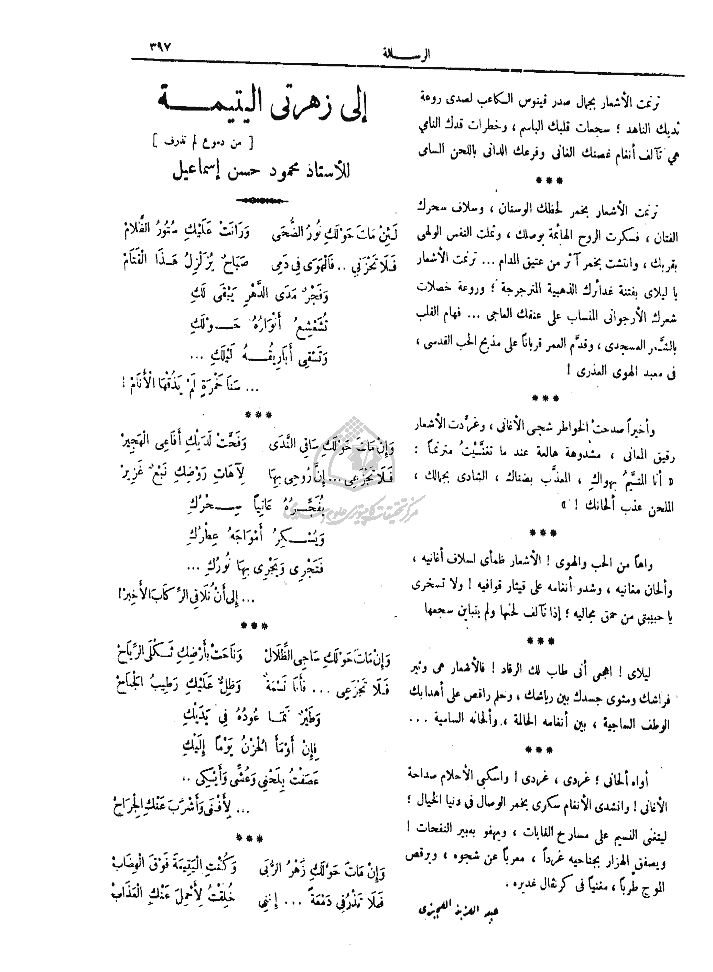 الرسالة
٣٩٧
ترنمت الأشعار بجمال صدر فينوس الكاعب لصدى روعة
ثديك الناهد ؛ سجعات قلبك الباسم ، وخطرات قدك النامي
هي تآلف أنغام غصنك الغانى وفرعك الدانى باللحن السامى
***
ترنمت الأشعار بخمر لحظك الوسنان ، وسلاف سحرك
الفتان ، فسكرت الروح الهائمة بوصلك ، وثملت النفس الولهى
بقربك ، وانتشت بخمر آثر من عتيق المدام ... ترنمت الأشعار
يا ليلاى بفتنة غدائرك الذهبية المترجرجة ؛ وروعة خصلات
شعرك الأرجوانى المنساب على عنقك العاجى ... فهام القلب
العسجدى ، وقدَّم العمر قرباناً على مذبح الحب القدسى ،
فى معبد الهوى العذرى !
***
وأخيراً صدحت الخواطر شجى الأغانى ، وغرَّدت الأشعار
رقيق المعانى ، مشدوهة هالعة عند ما تغنَّيْتُ مترنماً :
« أنا المتيَّم بهواكِ ، المعذب بضناك ، الشادى بجمالك ،
اللحن عذب ألحانك ! »
***
واهاً من الحب والهوى ! الأشعار ظمأى لسلاف أغانيه ،
وألحان مغانيه ، وشدو أنغامه على قيثار قوافيه ! ولا تسخرى
يا حبيبتى من حمق مجاليه ؛ إذا تآلف لحنها ولم يتباين سجعها
***
ليلاى ! اهجمى أنى طاب لك الرقاد ! فالأشعار هى وثير
فراشك ومثوى جسدك بين رياشك ، وحلم راقص على أهدابك
الوطف الساجية ، بين أنغامه الحالمة ، وألحانه السامية ...
***
أواه ألحانى ؛ غردى ، غردى ! واسكبى الأحلام صداحة
الأغانى ! وانشدى الأنغام سكرى بخمر الوصال فى دنيا الخيال !
ليتغنى النسيم على مسارح الغابات ، ويهفو بعبير النفحات !
ويصفق الهزار بجناحيه غرداً ، معرباً عن شجوه ، ويرقص
الموج طرباً ، مغنياً فى كرنفال غديره .
عبد العزيز العجيزى
إلى زهرتى اليتيمة
[ من دموع لم تذرف ]
للأستاذ محمود حسن إسماعيل
لَئِنْ مَاتَ حَوْلَكِ نُورُ الضُّحَى وَرَانَتْ عَلَيْكِ سُتُورُ الظَّلَامْ
فَلَا تَحْزَنِي .. فَالْهَوَى فِي دَمِي صَبَاحٌ يُزَلْزِلُ هَذَا الْقَتَامْ
وَفَجْرٌ مَدَى الدَّهْرِ يَبْقَى لَكِ
تُشَعْشِعُ أَنْوَارُهُ حَوْلَكِ
وَتَسْقِى أَبَارِيقُهُ لَيْلَكِ ...
... سَنَا خَمْرَةٍ لَمْ يَذُقْهَا الْأَنَامْ !
***
وَإِنْ مَاتَ حَوْلَكِ سَاقِي النَّدَى وَفَحَّتْ لَدَيْكِ أَفَاعِى الْهَجِيرْ
فَلَا تَجْزَعِى ... إِنَّ رُوحِى بِهَا لِآهَاتِ رَوْضِكِ نَبْعٌ غَزِيرْ
يُفَجِّرُهُ عَاتِياً سِحْرُكِ
وَيُسْكِرُ أَمْوَاجَهُ عِطْرُكِ
فَتَجْرِى وَيَجْرِى بِهَا نُورُكِ ...
... إِلَى أَنْ نُلَاقِى الرِّكَابَ الْأَخِيرْ !
***
وَإِنْ مَاتَ حَوْلَكِ سَاجِى الظِّلَالْ وَنَاحَتْ بِأَرْضِكِ ثَكْلَى الرِّيَاحْ
فَلَا تَجْزَعِى ... فَأَنَا نَسْمَةٌ وَظِلٌّ عَلَيْكِ رَطِيبُ الْجَنَاحْ
وَطَيْرٌ نَمَا عُودُهُ فِى يَدَيْكِ
فَإِنْ أَوْمَأَ الْحُزْنُ يَوْمًا إِلَيْكِ
عَصَفْتُ بِلَحْنِى وَعُشِّى وَأَيْكِى ..
... لِأَفْنَى وَأَشْرَبَ عَنْكِ الْجِرَاحْ
***
وَإِنْ مَاتَ حَوْلَكِ زَهْرُ الرُّبَى وَكُنْتِ الْيَتِيمَةَ فَوْقَ الْهِضَابْ
فَلَا تَذْرُفِى دَمْعَةً ... إِنَّنِى خُلِقْتُ لِأَحْمِلَ عَنْكِ الْعَذَابْ